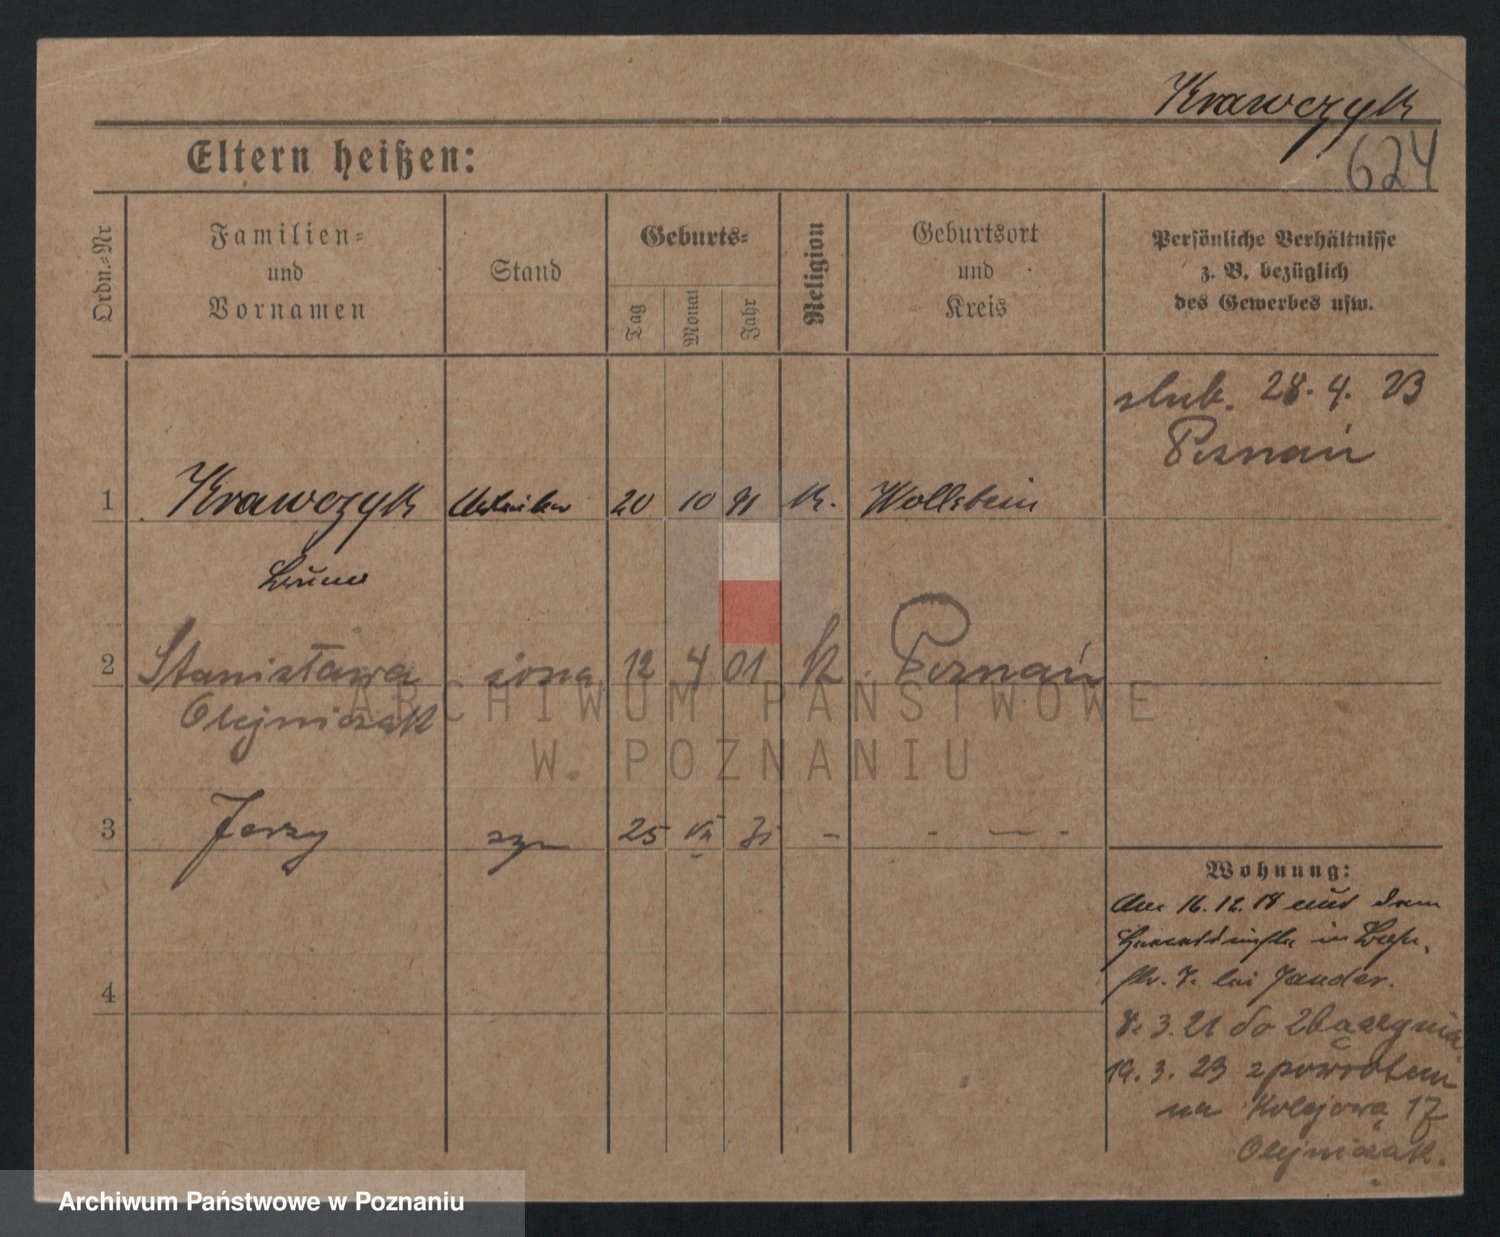 Krawczyk
624
Eltern heißen:
Ordn.-Nr
Familien-
und
Vornamen
Stand
Geburts-
Tag
Monat
Jahr
Religion
Geburtsort
und
Kreis
Persönliche Verhältnisse
z. B. bezüglich
des Gewerbes usw.
ślub. 28. 4. 23
Poznań
1 Krawczyk 20 10 91 K. Wollstein
Bruno
2 Stanisława żona 12 4 01 K. Poznań
Olejniczak
3 Jerzy syn 25 VII - - — -
4
Wohnung:
Am 16. 12. 18 aus dem
in Bahn-
str. 7. bei Jander.
3. 21 do Zbąszynia
19. 3. 23 z powrotem
na Kolejową 17
Olejniczak.
ARCHIWUM PAŃSTWOWE
W POZNANIU
Archiwum Państwowe w Poznaniu